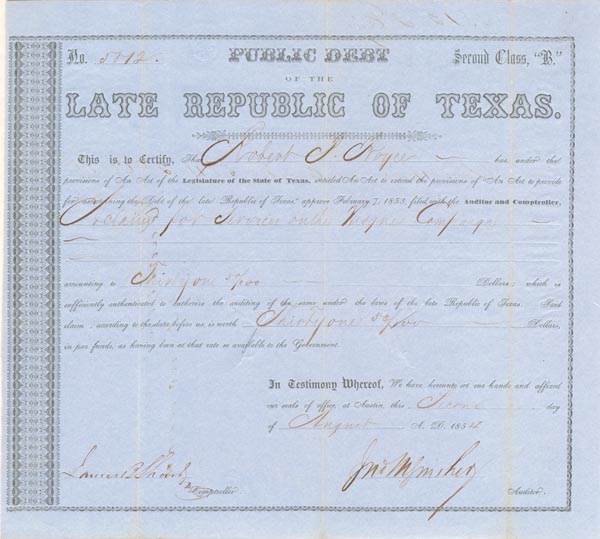 No. PUBLIC DEBT Second Class, "B."
OF THE
LATE REPUBLIC OF TEXAS.
This is to Certify, That Robert has under the
provisions of An Act of the Legislature of the State of Texas, entitled An Act to extend the provisions of "An Act to provide
for ascertaining the Debt of the late Republic of Texas," approve February 7, 1853, filed with the Auditor and Comptroller,
for Services on the Campaign
amounting to Thirty one 50/100 Dollars; which is
sufficiently authenticated to authorize the auditing of the same under the laws of the late Republic of Texas. Said
claim, according to the data before us, is worth Thirty one 50/100 Dollars,
in par funds, as having been at that rate so available to the Government.
In Testimony Whereof, We have hereunto set our hands and affixed
our seals of office, at Austin, this Second day
of August A. D. 1854
James B. Shaw
Comptroller. Auditor.